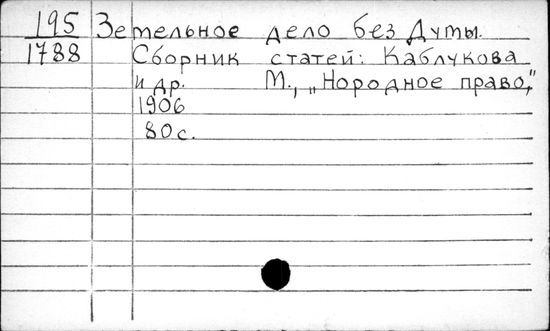 195 Зетельное дело без Думы.
1788 Сборник статей: Каблукова
и др. М., „Нородное право,"
1906
80с.